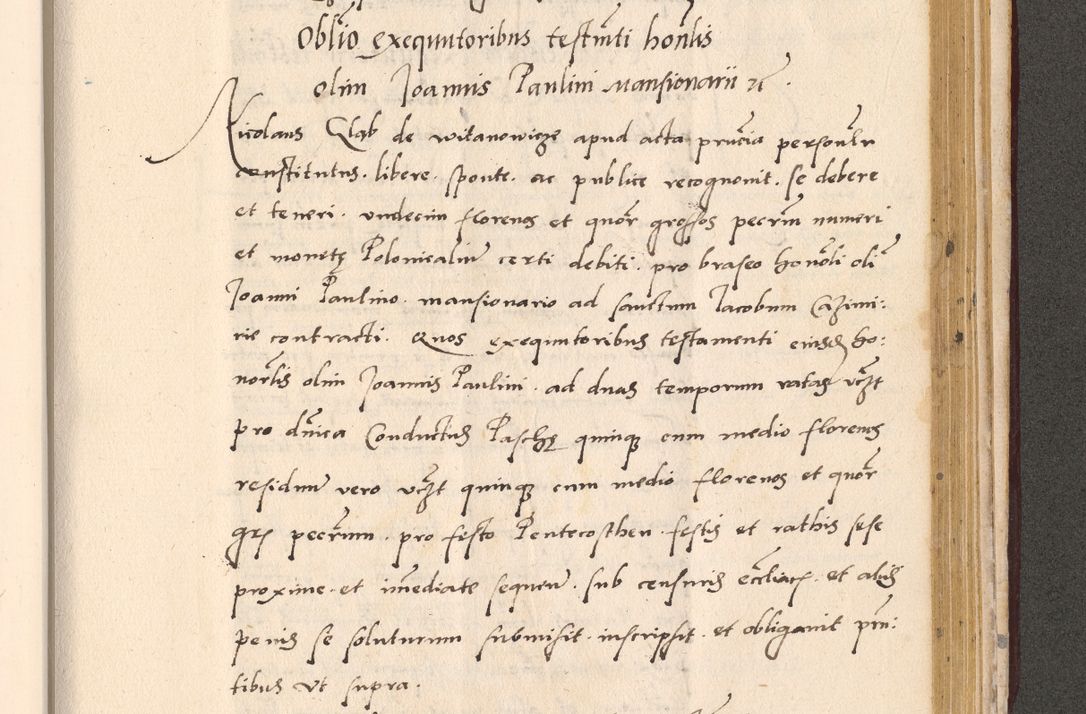 Oblio exequutoribus testmti honlis
olim Joannis Paulini Mansionarii
Nicolaus Glab de witanowicze apud acta prncia personlr
constitutus. libere. sponte. ac publice recognovit. se debere
et teneri. undecim florenos et quor grossos pecrm numeri
et monetę Polonicaliu certi debiti. pro braseo honoli oli
Joanni Paulino. mansionario ad sanctum Jacobum Cazimi:
rie contracti. Quos exequutoribus testamenti eiusd ho:
norlis olim Joannis Paulini. ad duas temporum ratas vczt
pro dnica Conductus Paschę quinque cum medio florenos
residuu vero vczt quinque cum medio florenos et quor
grs pecrum. pro festo Pentecosthen. festis et rathis sese
proxime. et imediate sequen. sub censuris eccliacs. et aliis
penis se soluturum submisit. inscripsit. et obligavit prn:
tibus ut supra.